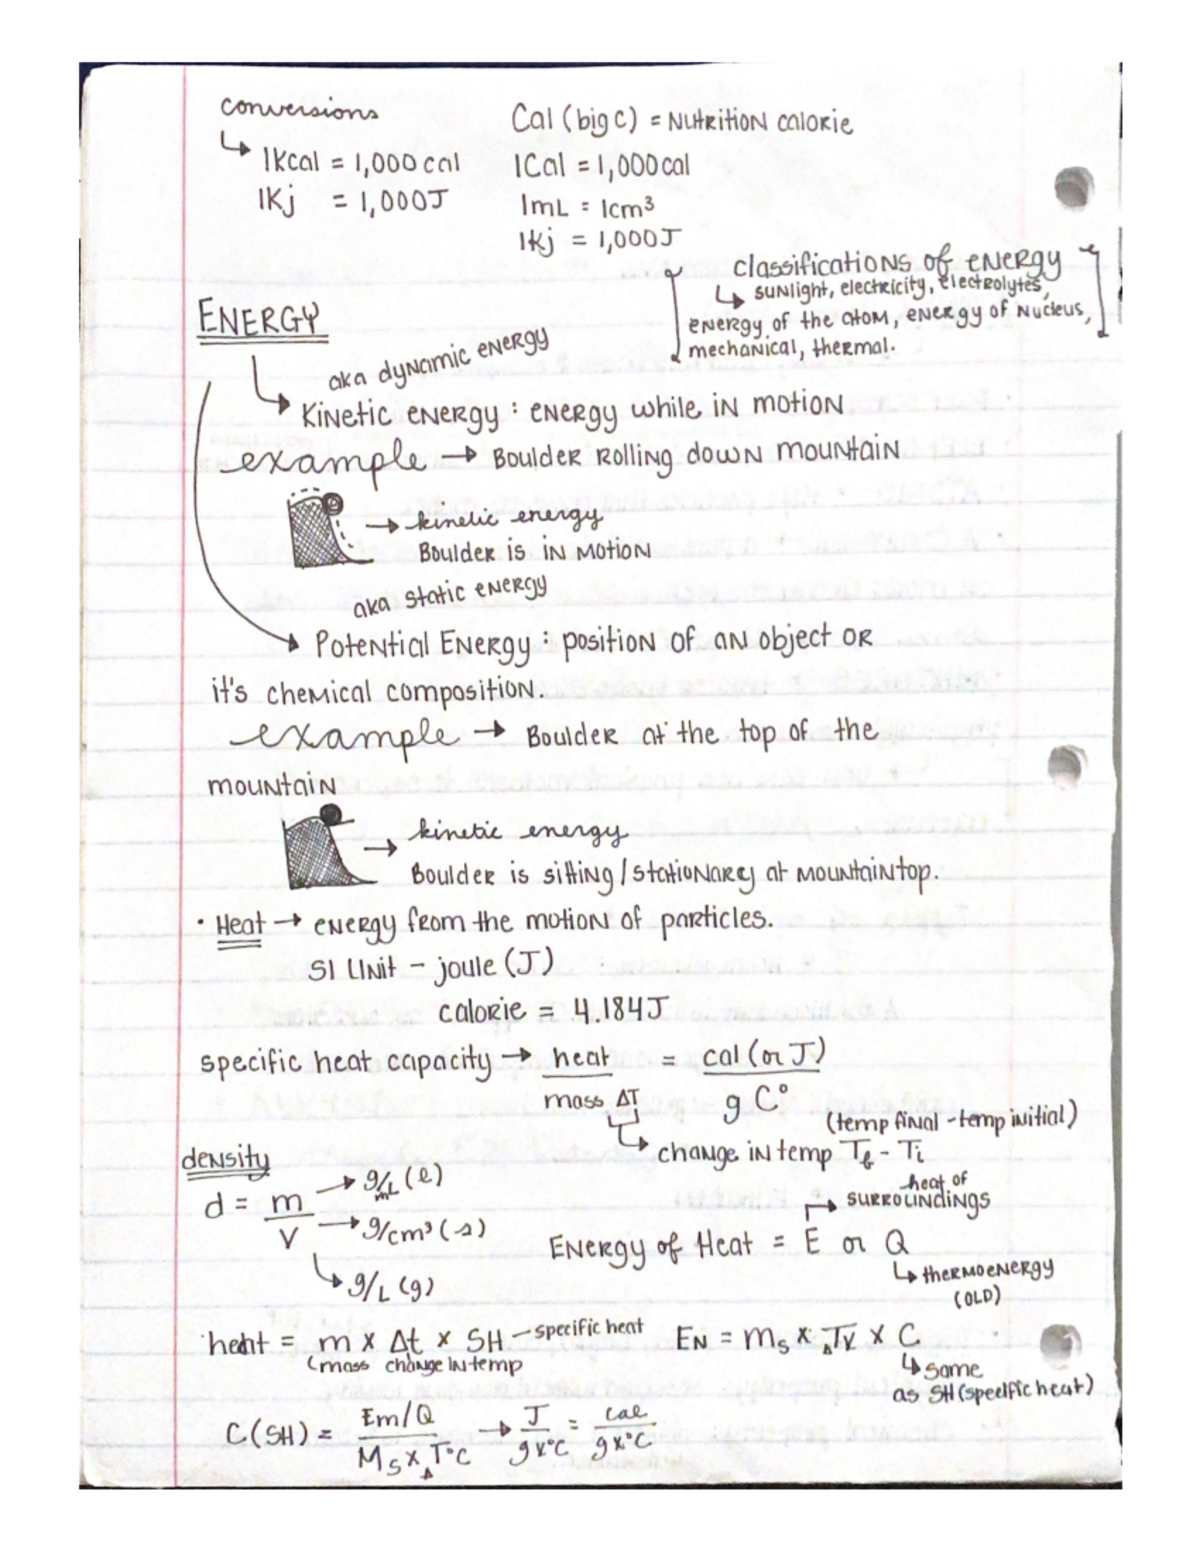 conversions
↳ 1Kcal = 1,000 cal
1Kj = 1,000J
Cal (big c) = Nutrition calorie
1Cal = 1,000cal
1mL = 1cm³
1kj = 1,000J
classifications of energy
↳ sunlight, electricity, electrolytes,
energy of the atom, energy of nucleus,
mechanical, thermal.
ENERGY
aka dynamic energy
Kinetic energy : energy while in motion
example → Boulder rolling down mountain
→ kinetic energy
Boulder is in motion
aka static energy
Potential Energy : position of an object or
it's chemical composition.
example → Boulder at the top of the
mountain
→ kinetic energy
Boulder is sitting/stationary at mountaintop.
· Heat → energy from the motion of particles.
SI Unit - joule (J)
calorie = 4.184J
specific heat capacity → heat = cal (or J)
mass ΔT g C°
(temp final - temp initial)
↳ change in temp Tf - Ti
density
d = m → g/mL (l)
V → g/cm³ (s)
↳ g/L (g)
heat of
surroundings
Energy of Heat = E or Q
↳ thermoenergy
(OLD)
heat = m x Δt x SH - specific heat
(mass change in temp
EN = ms x ΔTv x C
↳ same
as SH (speelfic heat)
C (SH) = Em/Q → J = cal
Ms x ΔT°C g x °C g x °C